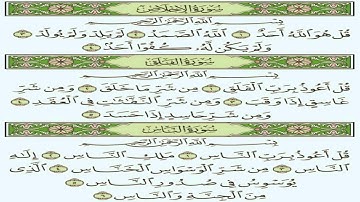 سُورَةُ الإِخْلَاصِ
بِسْمِ اللَّهِ الرَّحْمَٰنِ الرَّحِيمِ
قُلْ هُوَ اللَّهُ أَحَدٌ ١ اللَّهُ الصَّمَدُ ٢ لَمْ يَلِدْ وَلَمْ يُولَدْ ٣
وَلَمْ يَكُن لَّهُ كُفُوًا أَحَدٌ ٤
سُورَةُ الْفَلَقِ
بِسْمِ اللَّهِ الرَّحْمَٰنِ الرَّحِيمِ
قُلْ أَعُوذُ بِرَبِّ الْفَلَقِ ١ مِن شَرِّ مَا خَلَقَ ٢ وَمِن شَرِّ
غَاسِقٍ إِذَا وَقَبَ ٣ وَمِن شَرِّ النَّفَّاثَاتِ فِي الْعُقَدِ ٤
وَمِن شَرِّ حَاسِدٍ إِذَا حَسَدَ ٥
سُورَةُ النَّاسِ
بِسْمِ اللَّهِ الرَّحْمَٰنِ الرَّحِيمِ
قُلْ أَعُوذُ بِرَبِّ النَّاسِ ١ مَلِكِ النَّاسِ ٢ إِلَٰهِ
النَّاسِ ٣ مِن شَرِّ الْوَسْوَاسِ الْخَنَّاسِ ٤ الَّذِي
يُوَسْوِسُ فِي صُدُورِ النَّاسِ ٥
مِنَ الْجِنَّةِ وَالنَّاسِ ٦